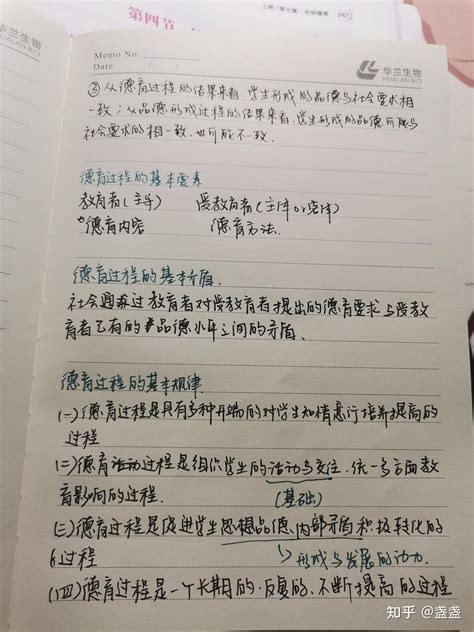 第四节
上册/第七章 中学德育 247
Memo No.
Date / /
华兰生物
HUALAN BIO
③从德育过程的结果来看,学生形成的品德与社会要求相
一致;从品德形成过程的结果来看,学生形成的品德可能与
社会要求的相一致,也可能不一致.
德育过程的基本要素
教育者(主导) 受教育者(主体or客体)
德育内容 德育方法.
德育过程的基本矛盾.
社会通过教育者对受教育者提出的德育要求与受教
育者已有的品德水平之间的矛盾.
德育过程的基本规律
(一)德育过程是具有多种开端的对学生知情意行培养提高的
过程
(二)德育过程是组织学生的活动与交往,统一多方面教
育影响的过程. (基础)
(三)德育过程是促进学生思想品德内部矛盾积极转化的
过程 形成与发展的动力.
(四)德育过程是一个长期的、反复的、不断提高的过程
知乎 @盏盏